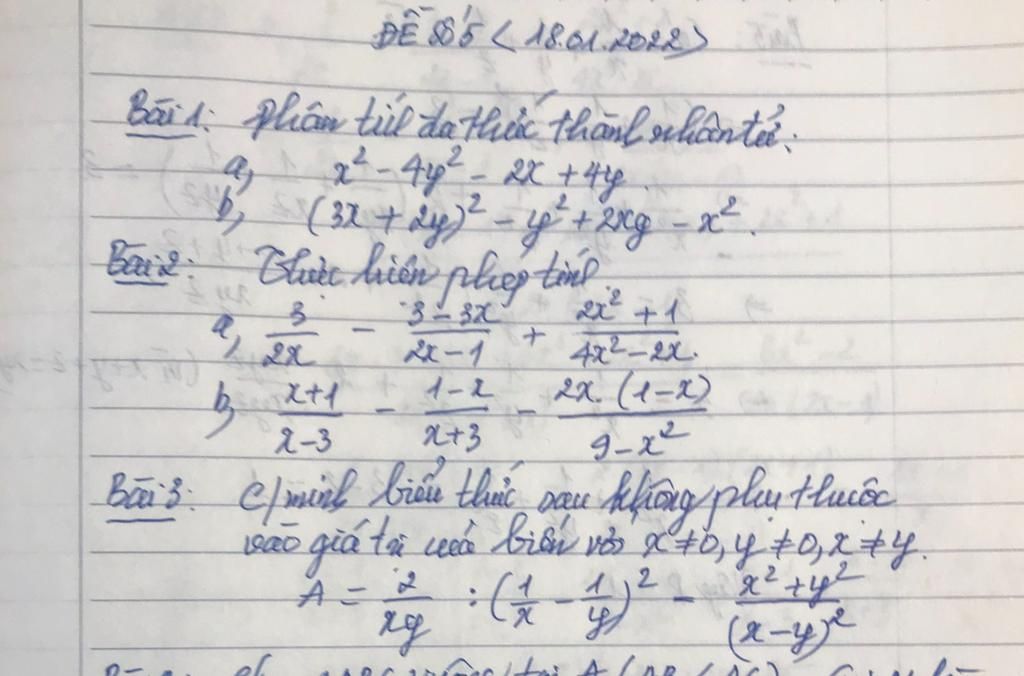 ĐỀ SỐ 5 < 18.01.2022 >
Bài 1: Phân tích đa thức thành nhân tử:
a, x² - 4y² - 2x + 4y.
b, (3x + 2y)² - y² + 2xy - x².
Bài 2: Thực hiện phép tính
a, 3/2x - (3 - 3x)/(2x - 1) + (2x² + 1)/(4x² - 2x).
b, (x+1)/(x-3) - (1-x)/(x+3) - 2x.(1-x)/(9-x²)
Bài 3: C/minh biểu thức sau không phụ thuộc
vào giá trị của biến với x ≠ 0, y ≠ 0, x ≠ y.
A = 2/xy : (1/x - 1/y)² - (x² + y²)/(x-y)²